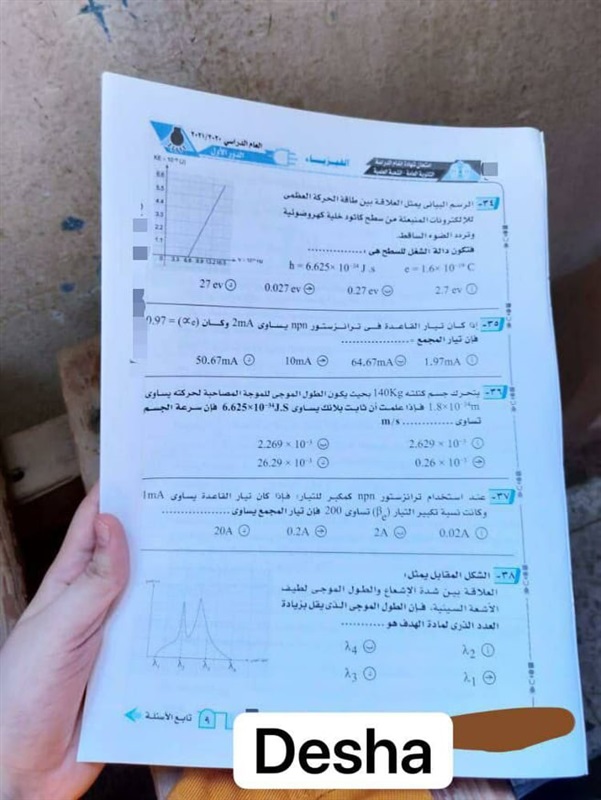 العام الدراسي ٢٠٢١/٢٠٢٠
الدور الأول
الفيزياء
امتحان شهادة إتمام الدراسة
الثانوية العامة - الشعبة العلمية
٣٤-
الرسم البيانى يمثل العلاقة بين طاقة الحركة العظمى
للإلكترونات المنبعثة من سطح كاثود خلية كهروضوئية
وتردد الضوء الساقط.
فتكون دالة الشغل للسطح هى ...............
h = 6.625× 10⁻³⁴ J .s e = 1.6× 10⁻¹⁹ C
أ 2.7 ev ب 0.27 ev ج 0.027 ev د 27 ev
5.5
4.4
3.3
2.2
1.1
0 3.3 6.6 9.9 13.2 16.5
٣٥- إذا كان تيار القاعدة فى ترانزستور npn يساوى 2mA وكان (∝e) = 0.97
فإن تيار المجمع = ...............
أ 1.97mA ب 64.67mA ج 10mA د 50.67mA
٣٦- يتحرك جسم كتلته 140Kg بحيث يكون الطول الموجى للموجة المصاحبة لحركته يساوى
1.8×10⁻³⁴m فإذا علمت أن ثابت بلانك يساوى 6.625×10⁻³⁴J.S فإن سرعة الجسم
تساوى ............... m/s
أ 2.629 × 10⁻³ ب 2.269 × 10⁻³
ج 0.26 × 10⁻³ د 26.29 × 10⁻³
٣٧- عند استخدام ترانزستور npn كمكبر للتيار؛ فإذا كان تيار القاعدة يساوى 1mA
وكانت نسبة تكبير التيار (βe) تساوى 200 فإن تيار المجمع يساوى ...............
أ 0.02A ب 2A ج 0.2A د 20A
٣٨- الشكل المقابل يمثل:
العلاقة بين شدة الإشعاع والطول الموجى لطيف
الأشعة السينية، فإن الطول الموجى الذى يقل بزيادة
العدد الذرى لمادة الهدف هو ...............
أ λ2 ب λ4
ج λ1 د λ3
λ1 λ2 λ3 λ4
٩ تابع الأسئلة
Desha